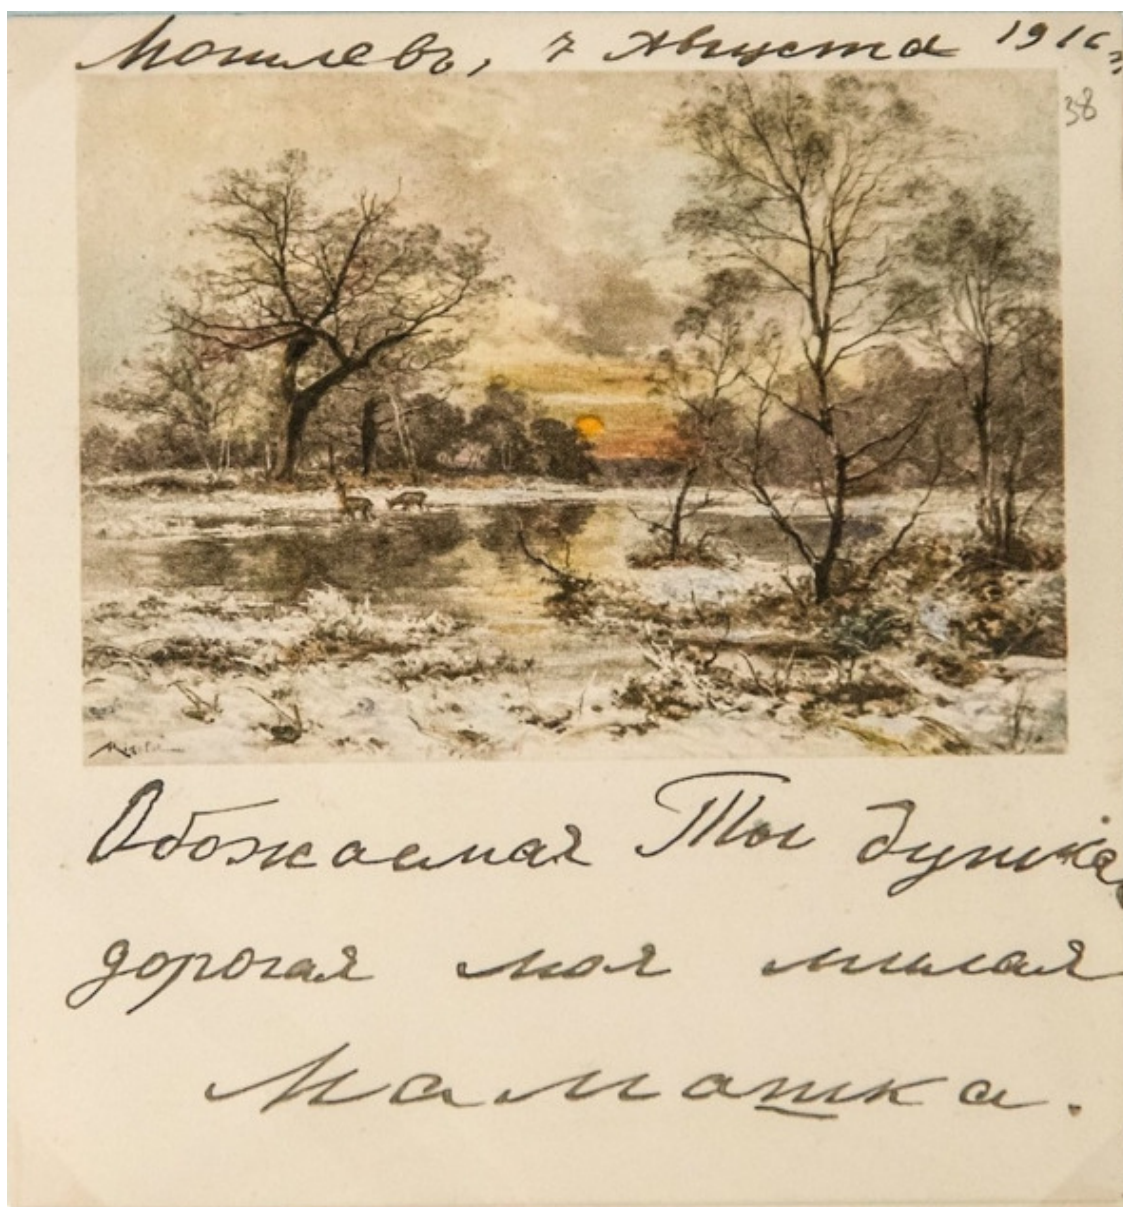 Могилевъ, 7 Августа 1916 г.
38
Обожаемая Ты душка
дорогая моя милая
Мамашка.